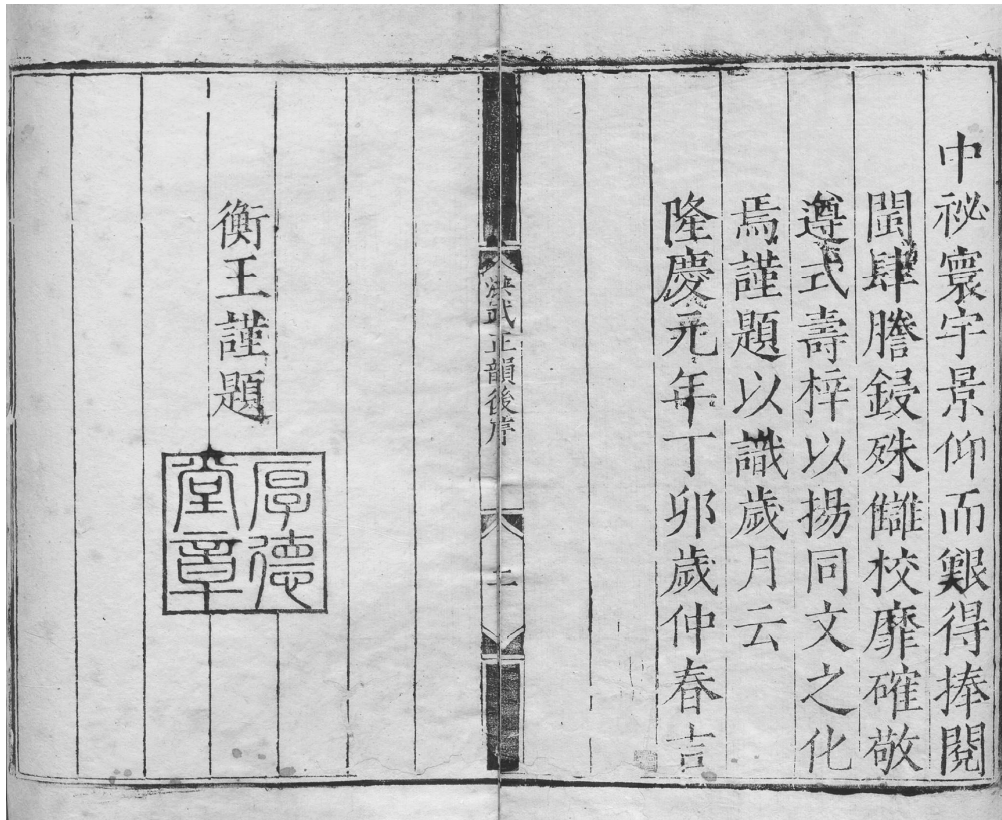 中祕寰宇景仰而艱得捧閱
閩肆謄鋟殊讎校靡確敬
遵式壽梓以揚同文之化
焉謹題以識歲月云
隆慶元年丁卯歲仲春吉
洪武正韻後序
二
衡王謹題
厚德
堂章